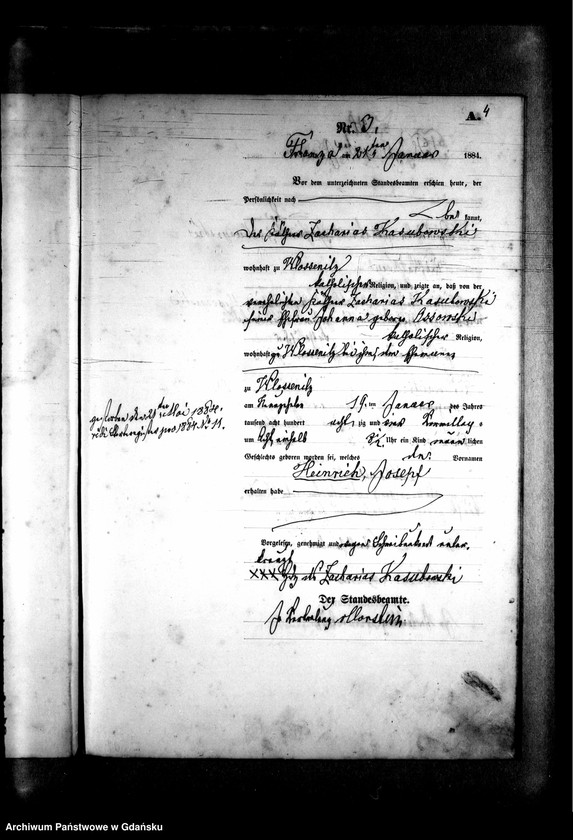 A. 4
Nr. 3.
Franza am 21ten Januar 1884.
Vor dem unterzeichneten Standesbeamten erschien heute, der
Persönlichkeit nach
be kannt,
der Käthner Zacharias Kasuborowski
wohnhaft zu Klossenitz
katholischer Religion, und zeigte an, daß von der
verehelichten Käthner Zacharias Kasubowski
seiner Ehefrau Johanna geborne Ossowski
katholischer Religion,
wohnhaft zu Klossenitz bei ihrem Ehemann
zu Klossenitz
am 19. ten Januar des Jahres
tausend acht hundert acht zig und vier Vormittag
um acht einhalb 8½ Uhr ein Kind männlichen
Geschlechts geboren worden sei, welches die Vornamen
Heinrich, Josef
erhalten habe
gestorben den 21ten Mai 1884.
pro 1884 No 11.
Vorgelesen, genehmigt und wegen Schreibunkunde unter-
kreuzt
XXX Hdz. des Zacharias Kasubowski
Der Standesbeamte.
In Vertretung
Archiwum Państwowe w Gdańsku